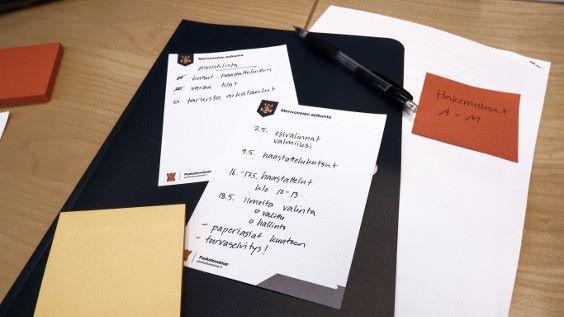 Merivoimien esikunta
muistilista
kutsut haastatteluihin
varaa tilat
tarkista aikataulut
Puolustusvoimat
Merivoimien esikunta
7.5. esivalinnat
valmiiksi
9.5. haastattelukutsut
16.-17.5. haastattelut
klo 10-13
18.5. ilmoita valinta
o valitu
o hallinto
- paperiasiat kuntoon
- turvaselvitys!
Puolustusvoimat
Hakemukset
A - M